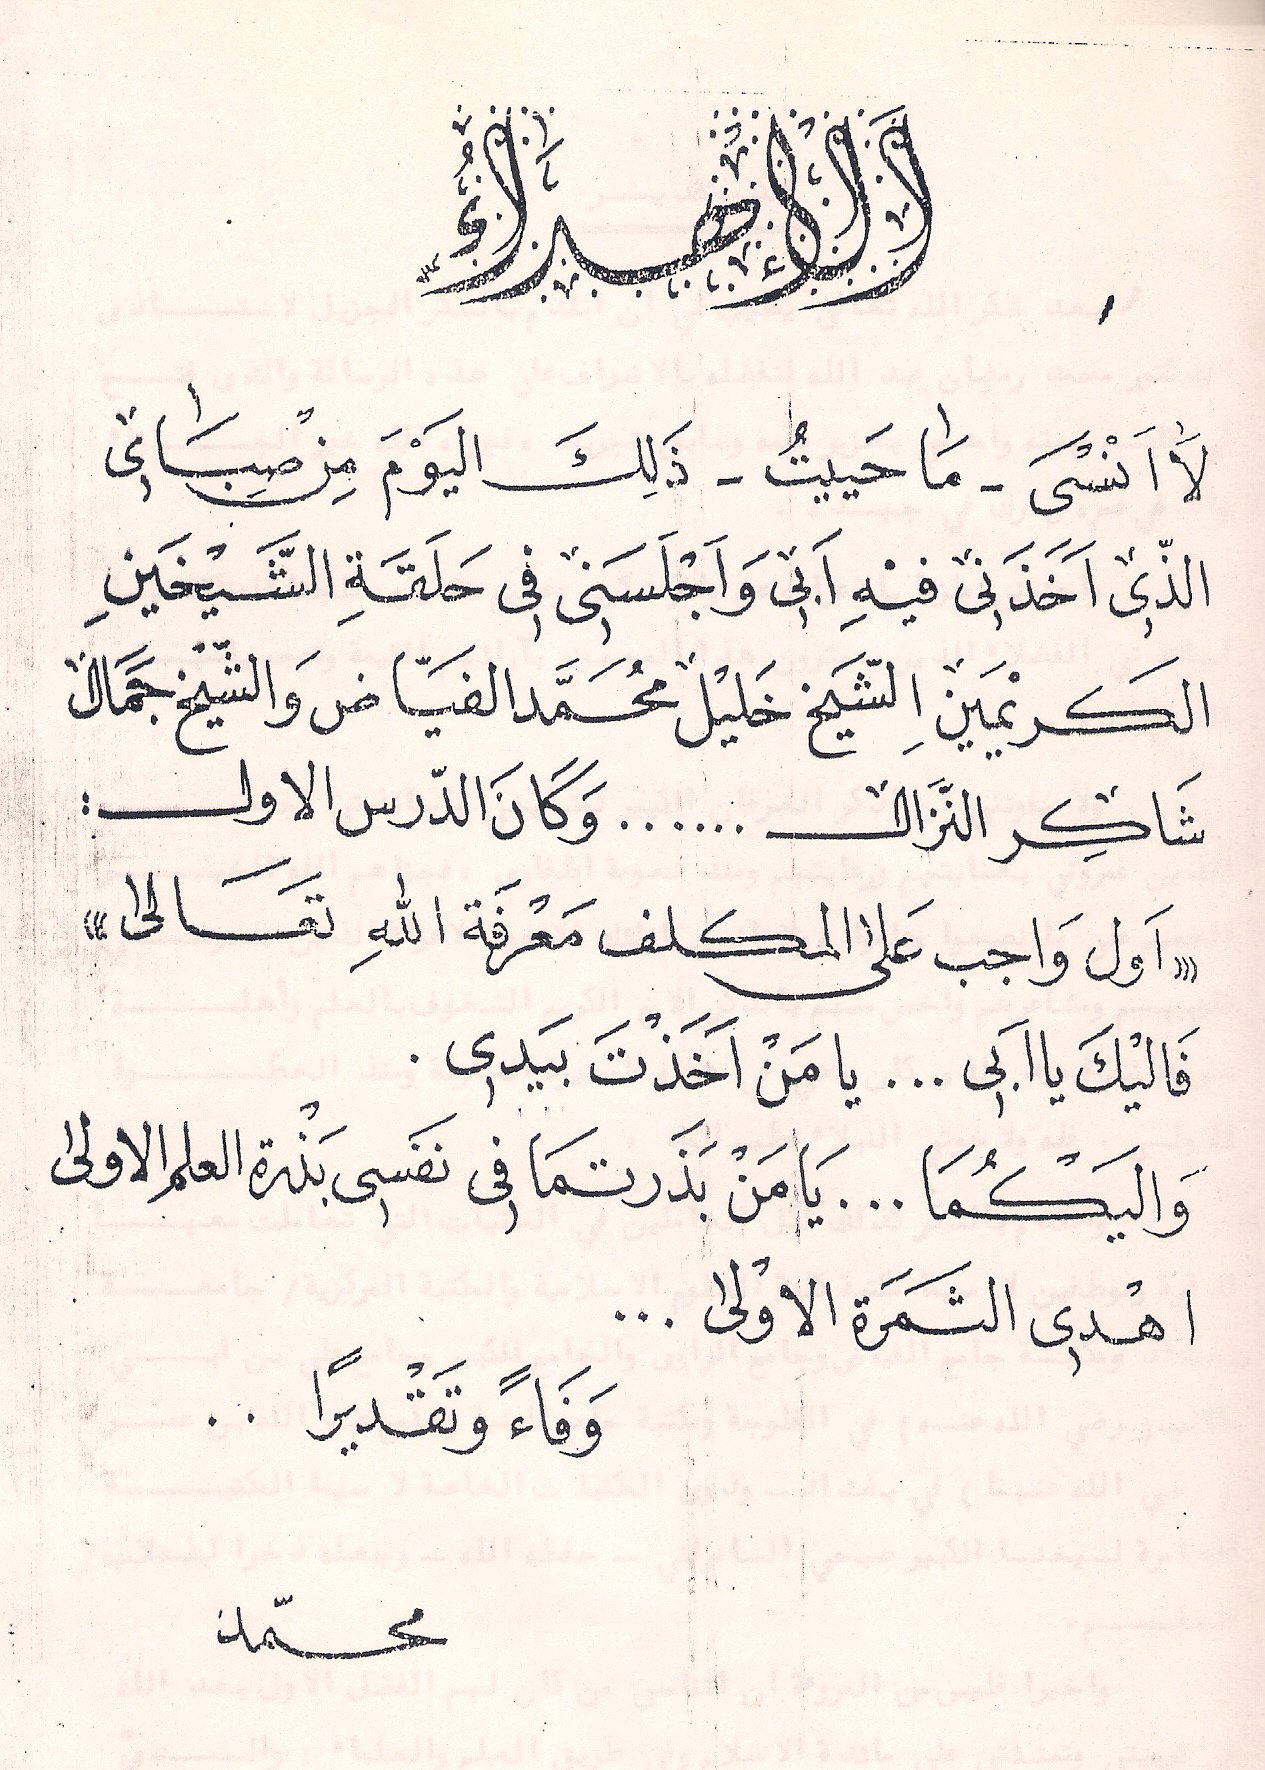 الإهداء
لَا اَنْسَى - مَا حَيِيتُ - ذَلِكَ اليَوْمَ مِنْ صِبَايَ
الذّي اَخَذَنِي فيْهِ اَبِي وَاَجْلَسَنِي في حَلَقَةِ الشَّيْخَينِ
الكَريْمَينِ الشَّيخ خَليْل مُحَمَّد الفيَّاض وَالشَّيْخ جَمَّال
شَاكِر النَّزَال ...... وَكَانَ الدّرس الاول :
«اَول وَاجب عَلى المكلف مَعْرفَة اللهِ تعَالى»
فَاليْكَ يا ابَي ... يا مَنْ اَخَذْتَ بيَدي .
وَاليَكُمَا ... يَا مَنْ بَذَرتمَا في نفَسي بَذْرة العلم الاولى
اهْدي الثَمَرَة الاوْلى ...
وَفَاءً وتَقْديرًا ..
محمّد